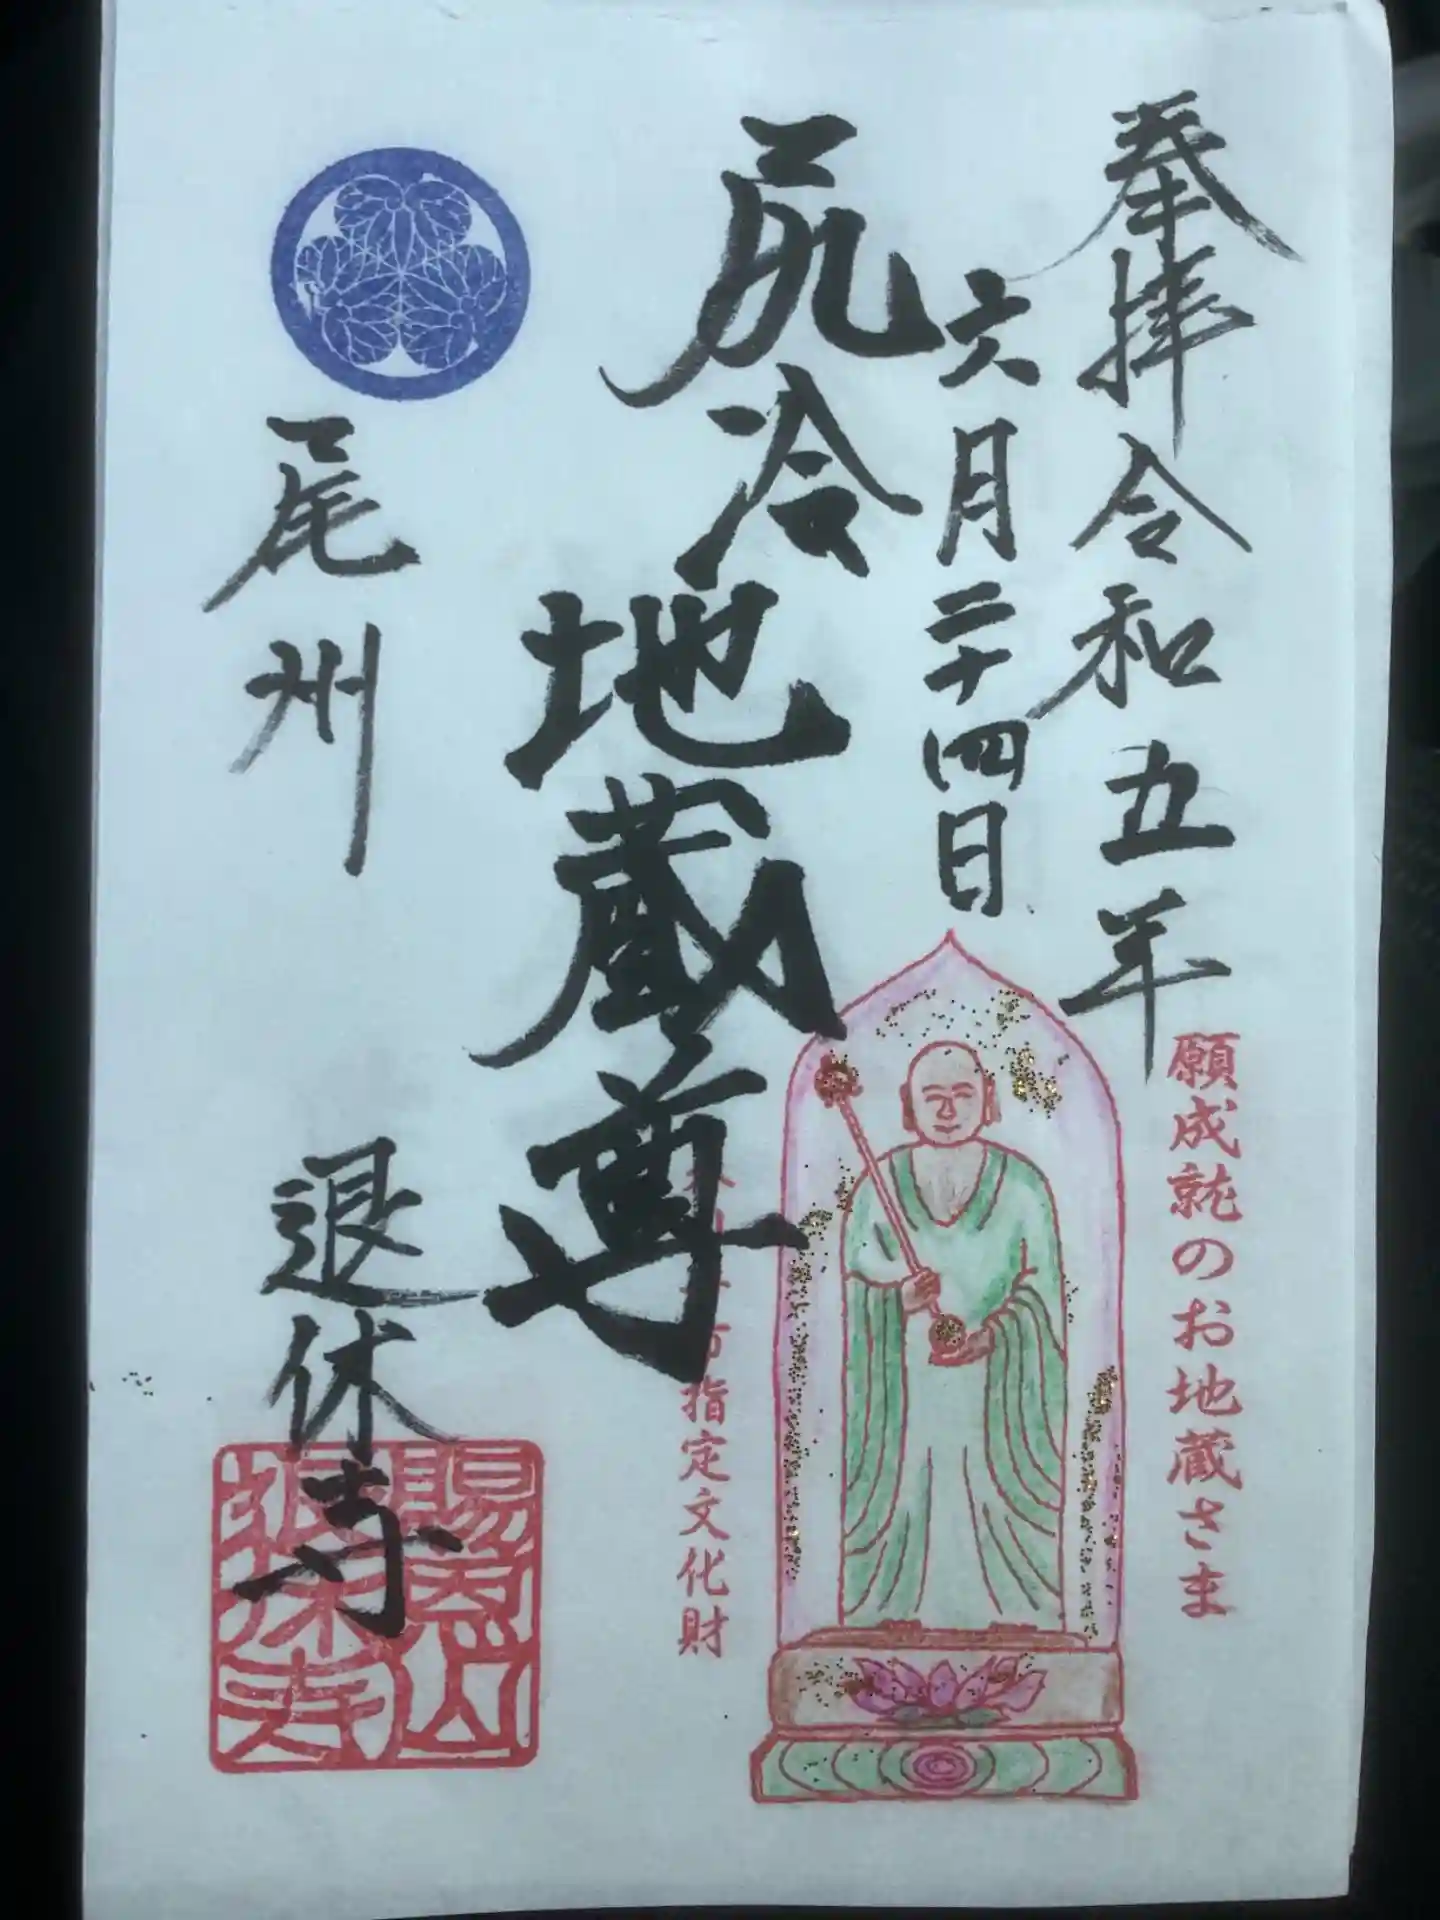 奉拝 令和五年
六月二十四日
願成就のお地蔵さま
尻冷地蔵尊
市指定文化財
尾州 退休寺
退休寺